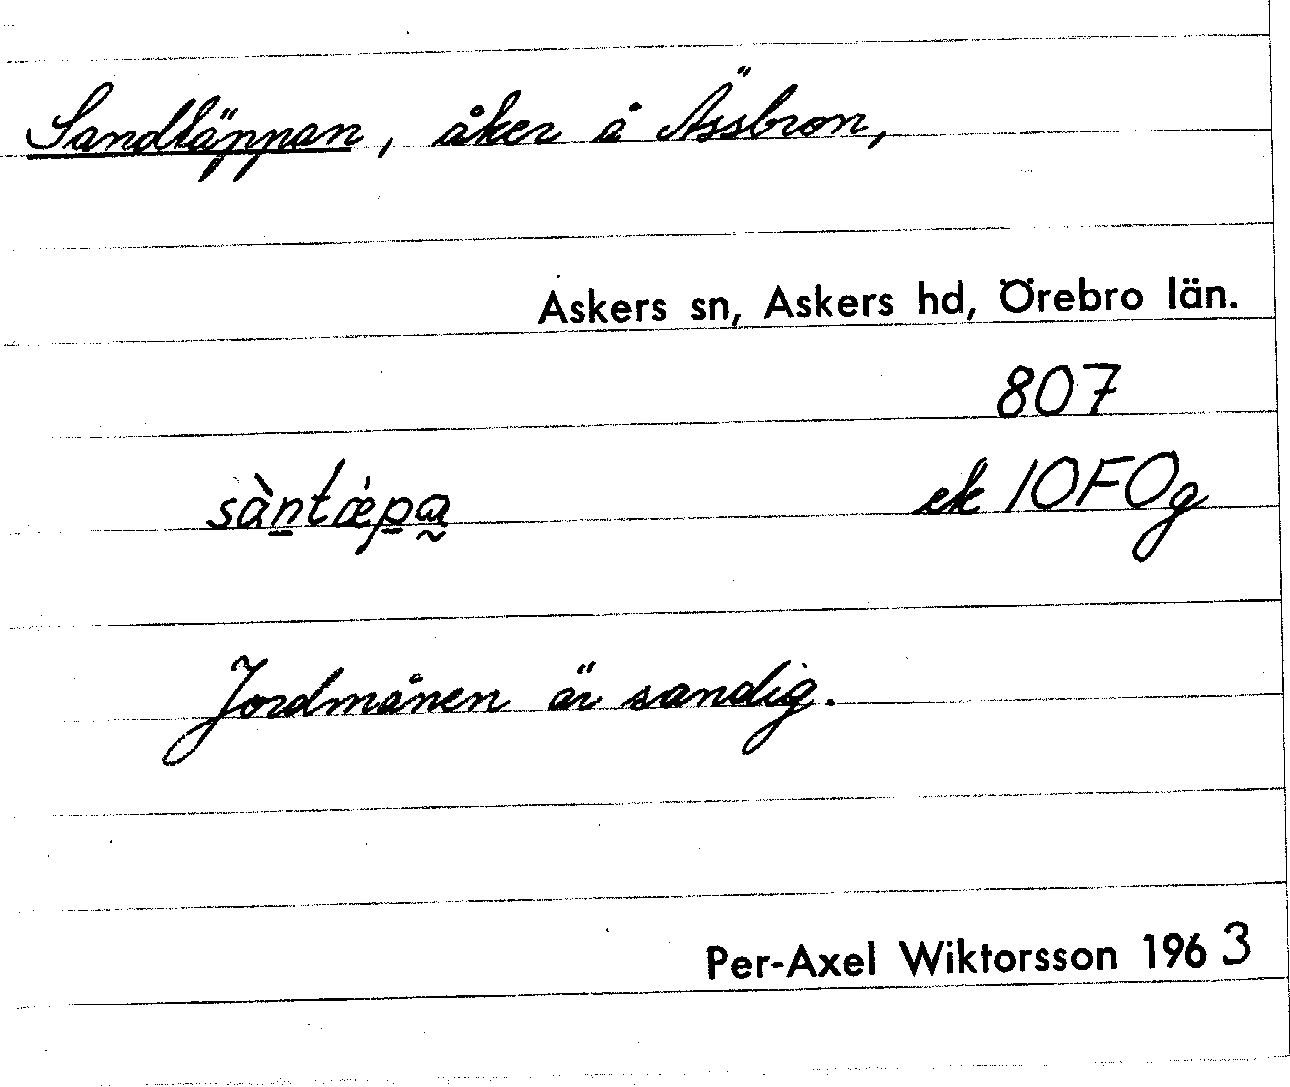 Sandtäppan, åker å Ässbron,
Askers sn, Askers hd, Örebro län.
807
sàntæ̀pa ek 10F0g
Jordmånen är sandig.
Per-Axel Wiktorsson 1963